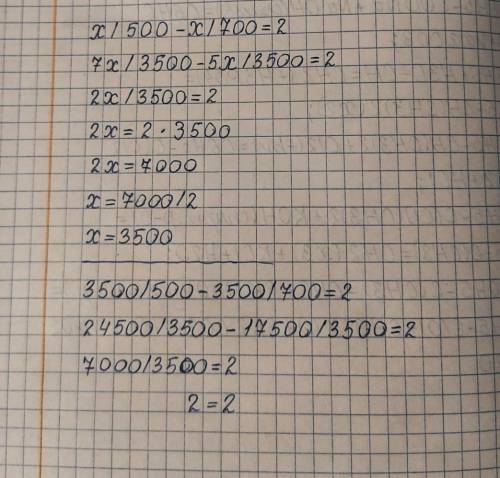 x/500-x/700=2
7x/3500-5x/3500=2
2x/3500=2
2x=2·3500
2x=7000
x=7000/2
x=3500
3500/500-3500/700=2
24500/3500-17500/3500=2
7000/3500=2
2=2